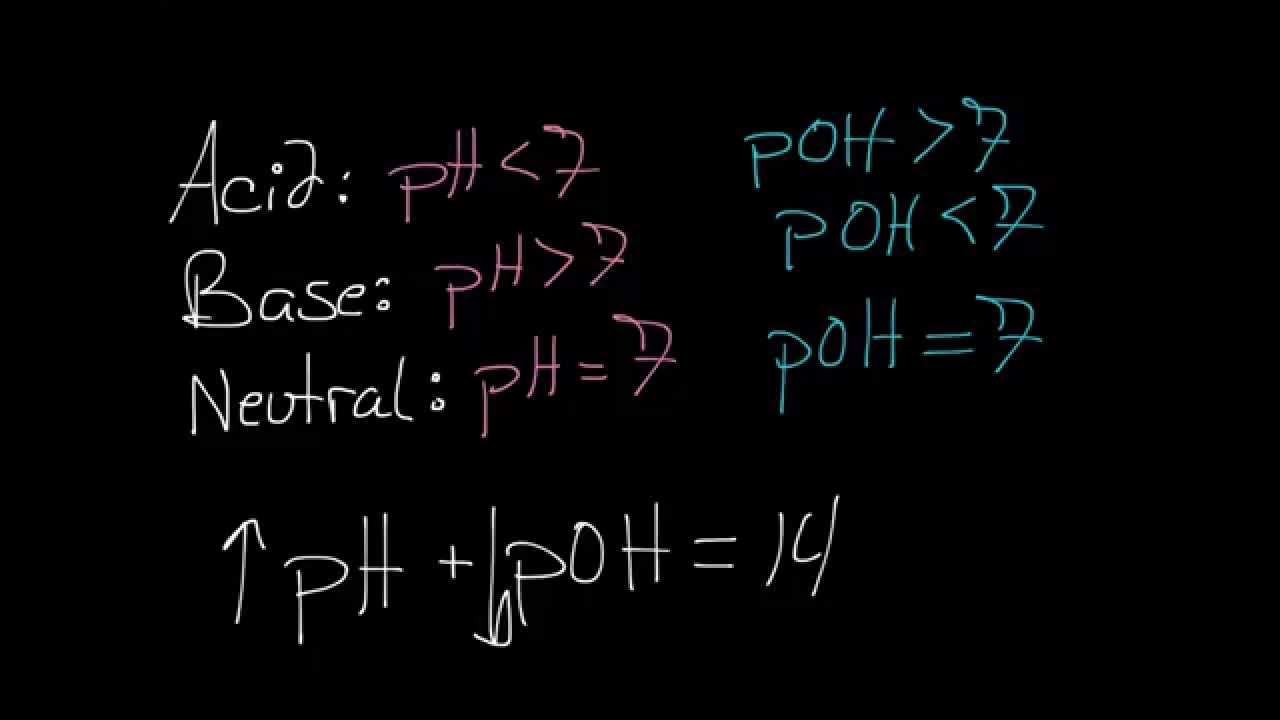 Acid: pH < 7 pOH > 7
Base: pH > 7 pOH < 7
Neutral: pH = 7 pOH = 7
↑ pH + ↓ pOH = 14